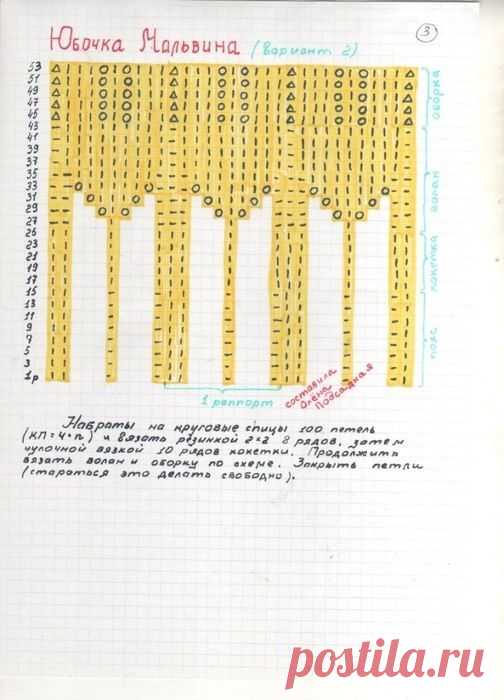 Юбочка Мальвина (вариант 2)
3
53
51
49
47
45
43
41
39
37
35
33
31
29
27
25
23
21
19
17
15
13
11
9
7
5
3
1р
оборка
волан
кокетка
пояс
1 раппорт
составила
Олена
Подсадная
Набраты на круговые спицы 100 петель
(КП = 4·n) и вязать резинкой 2×2 8 рядов, затем
чулочной вязкой 10 рядов кокетки. Продолжить
вязать волан и оборку по схеме. Закрыть петли
(стараться это делать свободно).
postila.ru